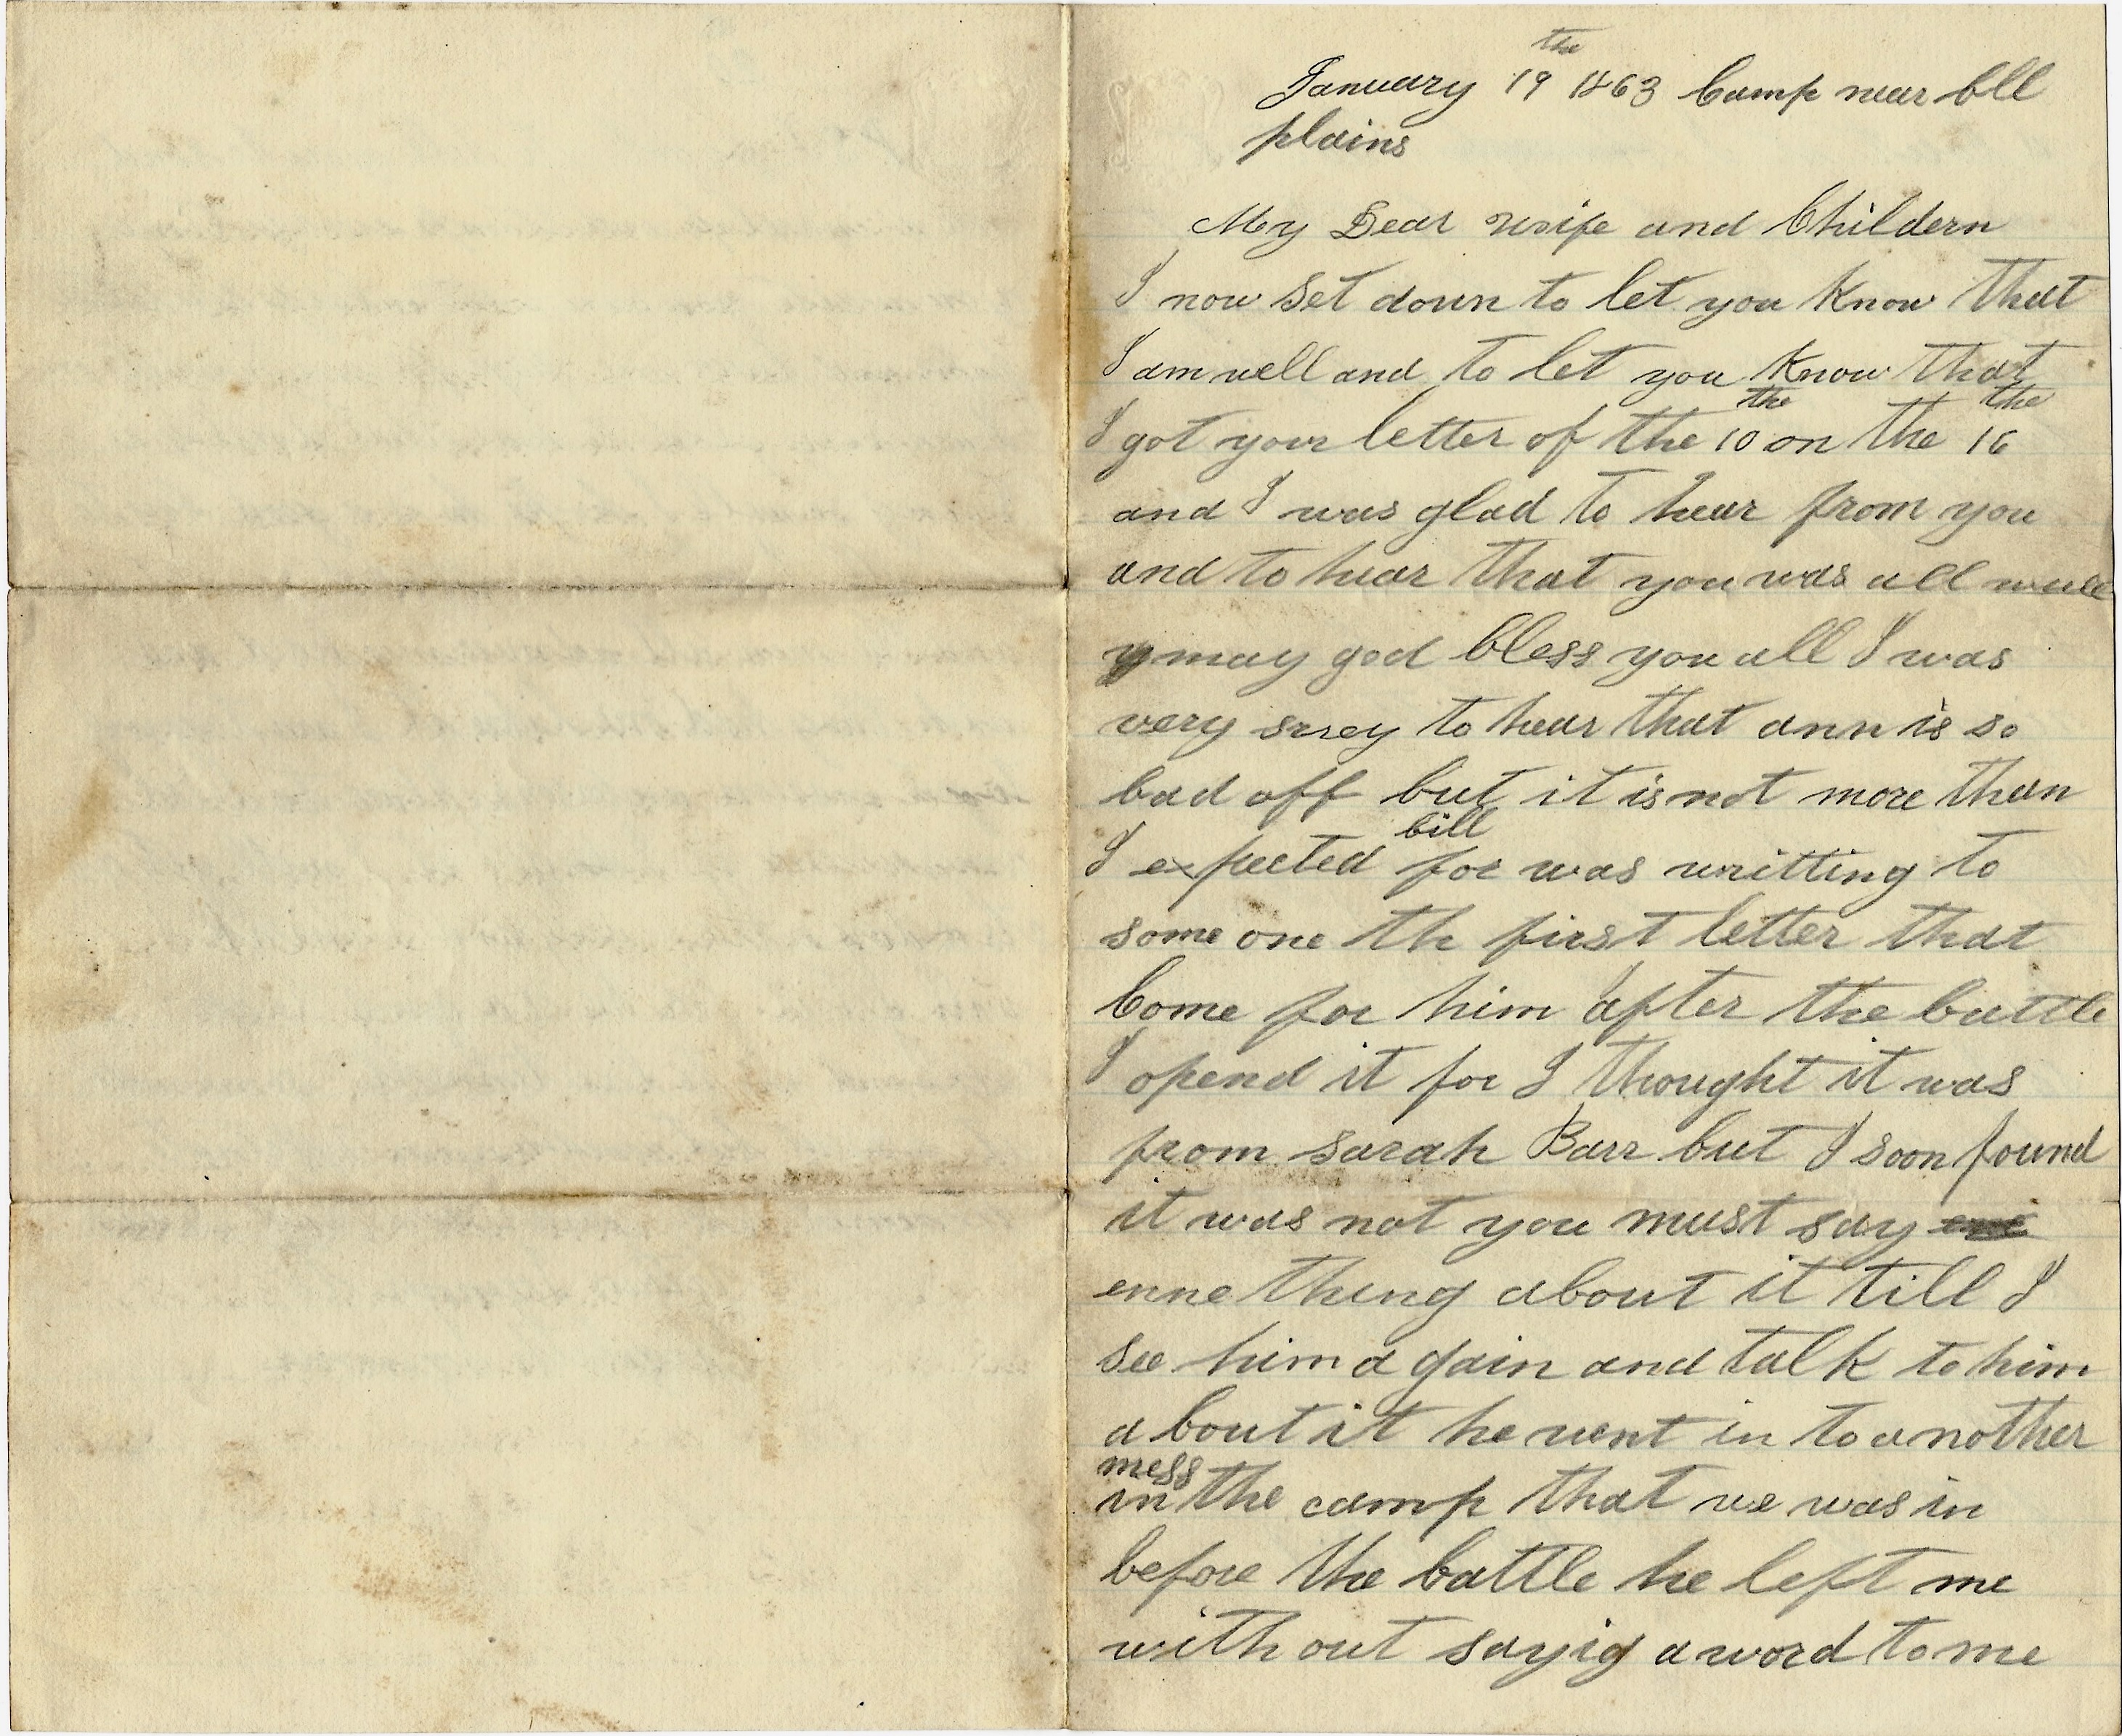 January 19the 1863 Camp near bll
plains
My Dear wife and Childern
I now set down to let you know that
I am well and to let you know that
I got your letter of the 10the on the 16the
and I was glad to hear from you
and to hear that you was all well
may god bless you all I was
very sorey to hear that ann is so
bad off but it is not more than
I expected for bill was writting to
some one th first letter that
Come for him after the battle
I opend it for I thought it was
from sarah Barr but I soon found
it was not you must say
enne thing about it till I
see him a gain and talk to him
a bout it he went in to a nother
mess in the camp that we was in
before the battle he left me
with out sayig a word to me